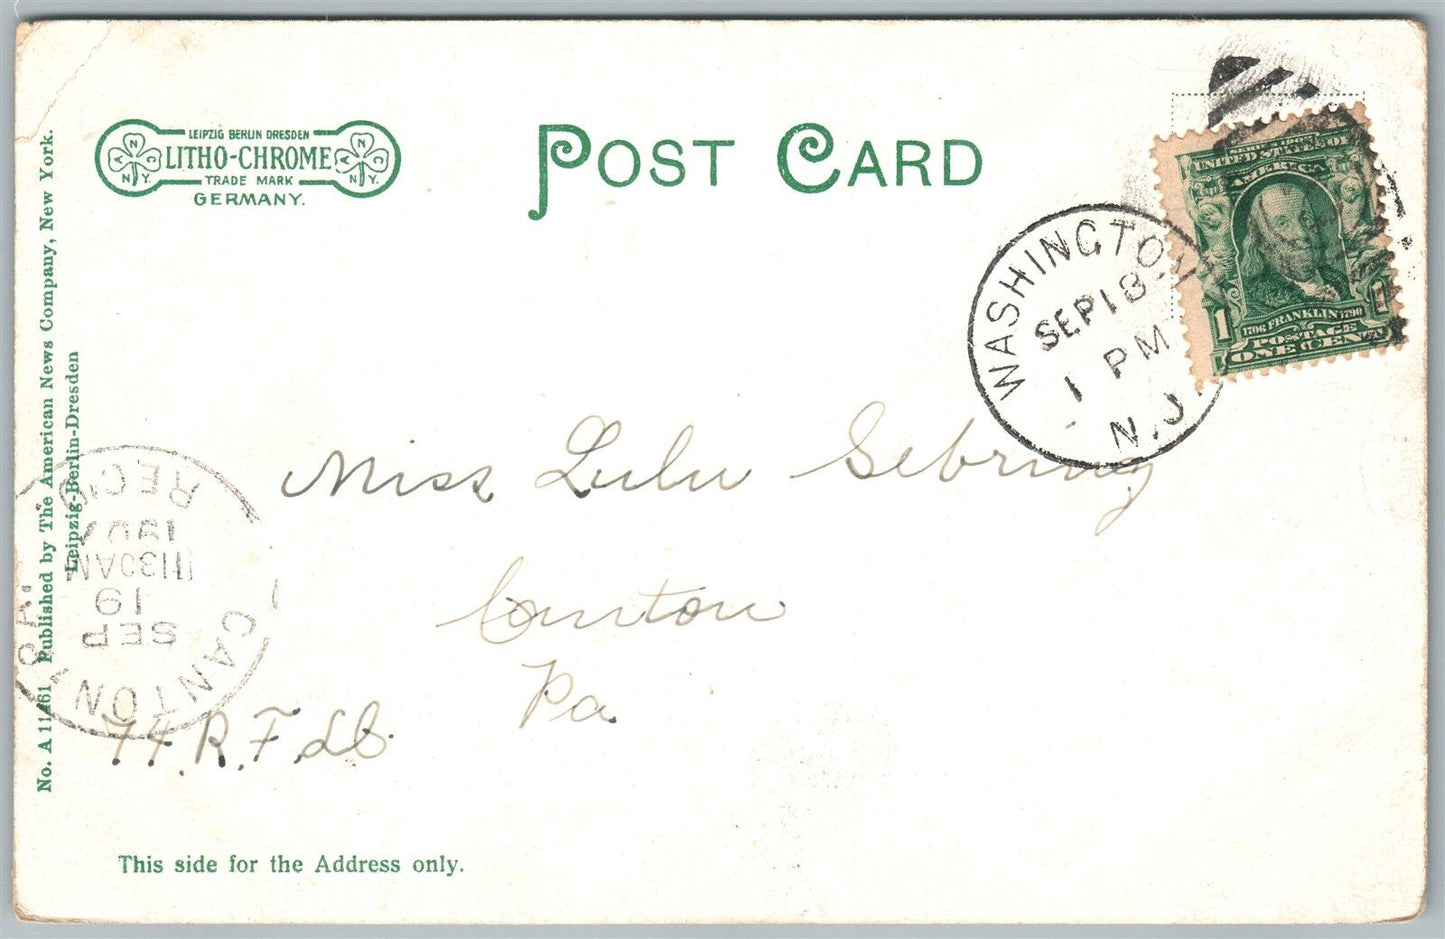 LEIPZIG BERLIN DRESDEN
LITHO-CHROME
TRADE MARK
GERMANY.
A N C N.Y.
A N C N.Y.
POST CARD
UNITED STATES OF
AMERICA
1706 FRANKLIN 1790
POSTAGE
1 ONE CENT 1
WASHINGTON
SEP 18
1 PM
N.J.
Miss Lulu Sebring
Canton
Pa.
CANTON, PA.
SEP
19
1130AM
REC'D.
No. A 11461 Published by The American News Company, New York.
Leipzig-Berlin-Dresden
This side for the Address only.